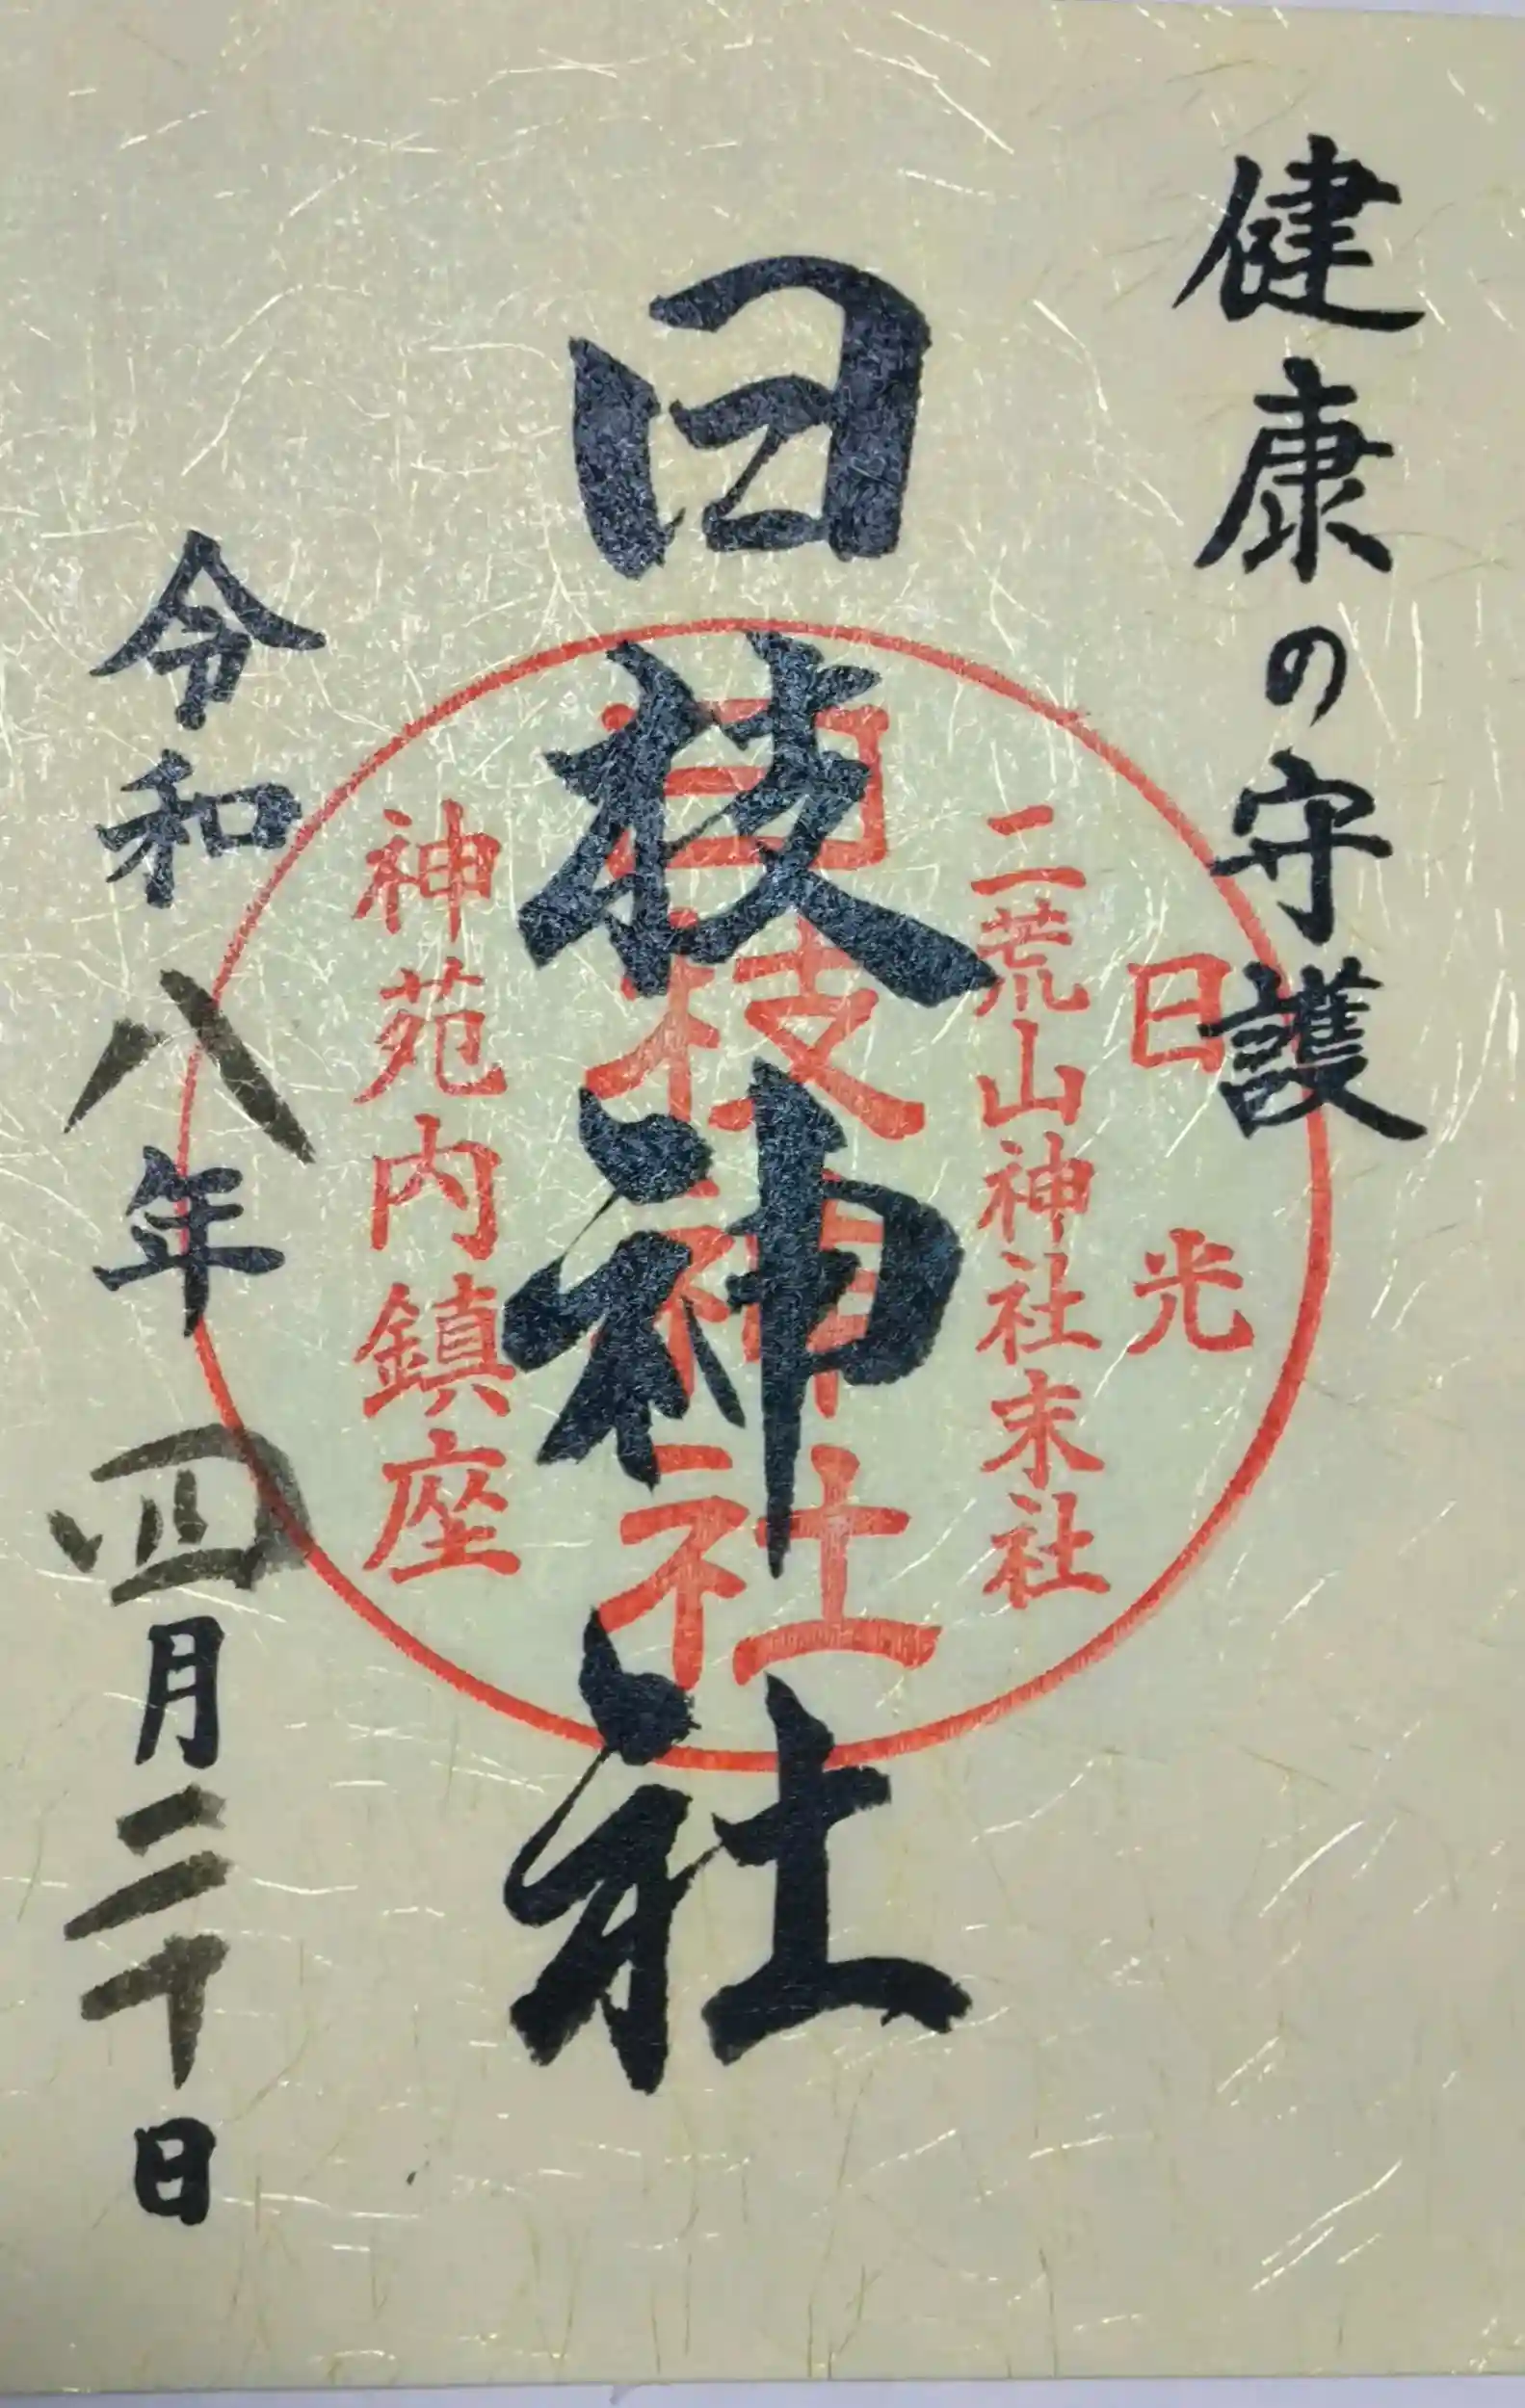 健康の守護
日光
二荒山神社末社
日枝神社
神苑内鎮座
日枝神社
令和八年四月二十日